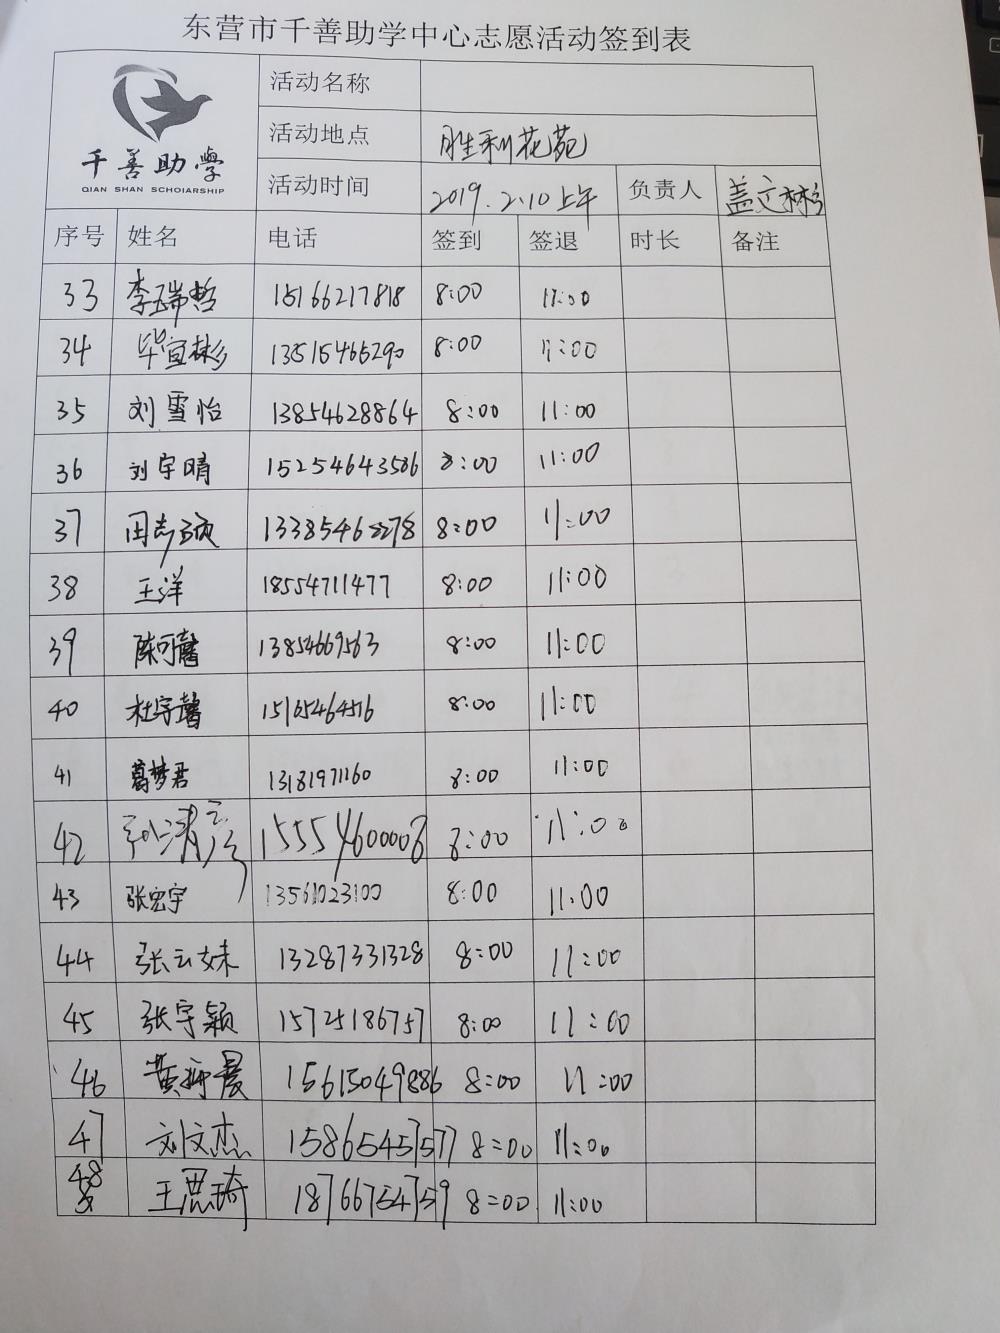 东营市千善助学中心志愿活动签到表
千善助學
QIAN SHAN SCHOIARSHIP
活动名称
活动地点 胜利花苑
活动时间 2019.2.10上午 负责人 盖立彬
序号 姓名 电话 签到 签退 时长 备注
33 李瑞哲 15166217818 8:00 11:00
34 毕宜彬 13515465290 8:00 11:00
35 刘雪怡 13854628864 8:00 11:00
36 刘宇晴 15254643586 8:00 11:00
37 田志硕 13385462278 8:00 11:00
38 王洋 18554711477 8:00 11:00
39 陈可馨 13854669563 8:00 11:00
40 杜宇馨 15165464516 8:00 11:00
41 葛梦君 13181971160 8:00 11:00
42 孙清彦 15554600008 8:00 11:00
43 张宏宇 13561023100 8:00 11:00
44 张云妹 13287331328 8:00 11:00
45 张宇颖 15725186757 8:00 11:00
46 黄 晨 15615049886 8:00 11:00
47 刘文杰 15865457577 8:00 11:00
48 王思琦 18766754759 8:00 11:00